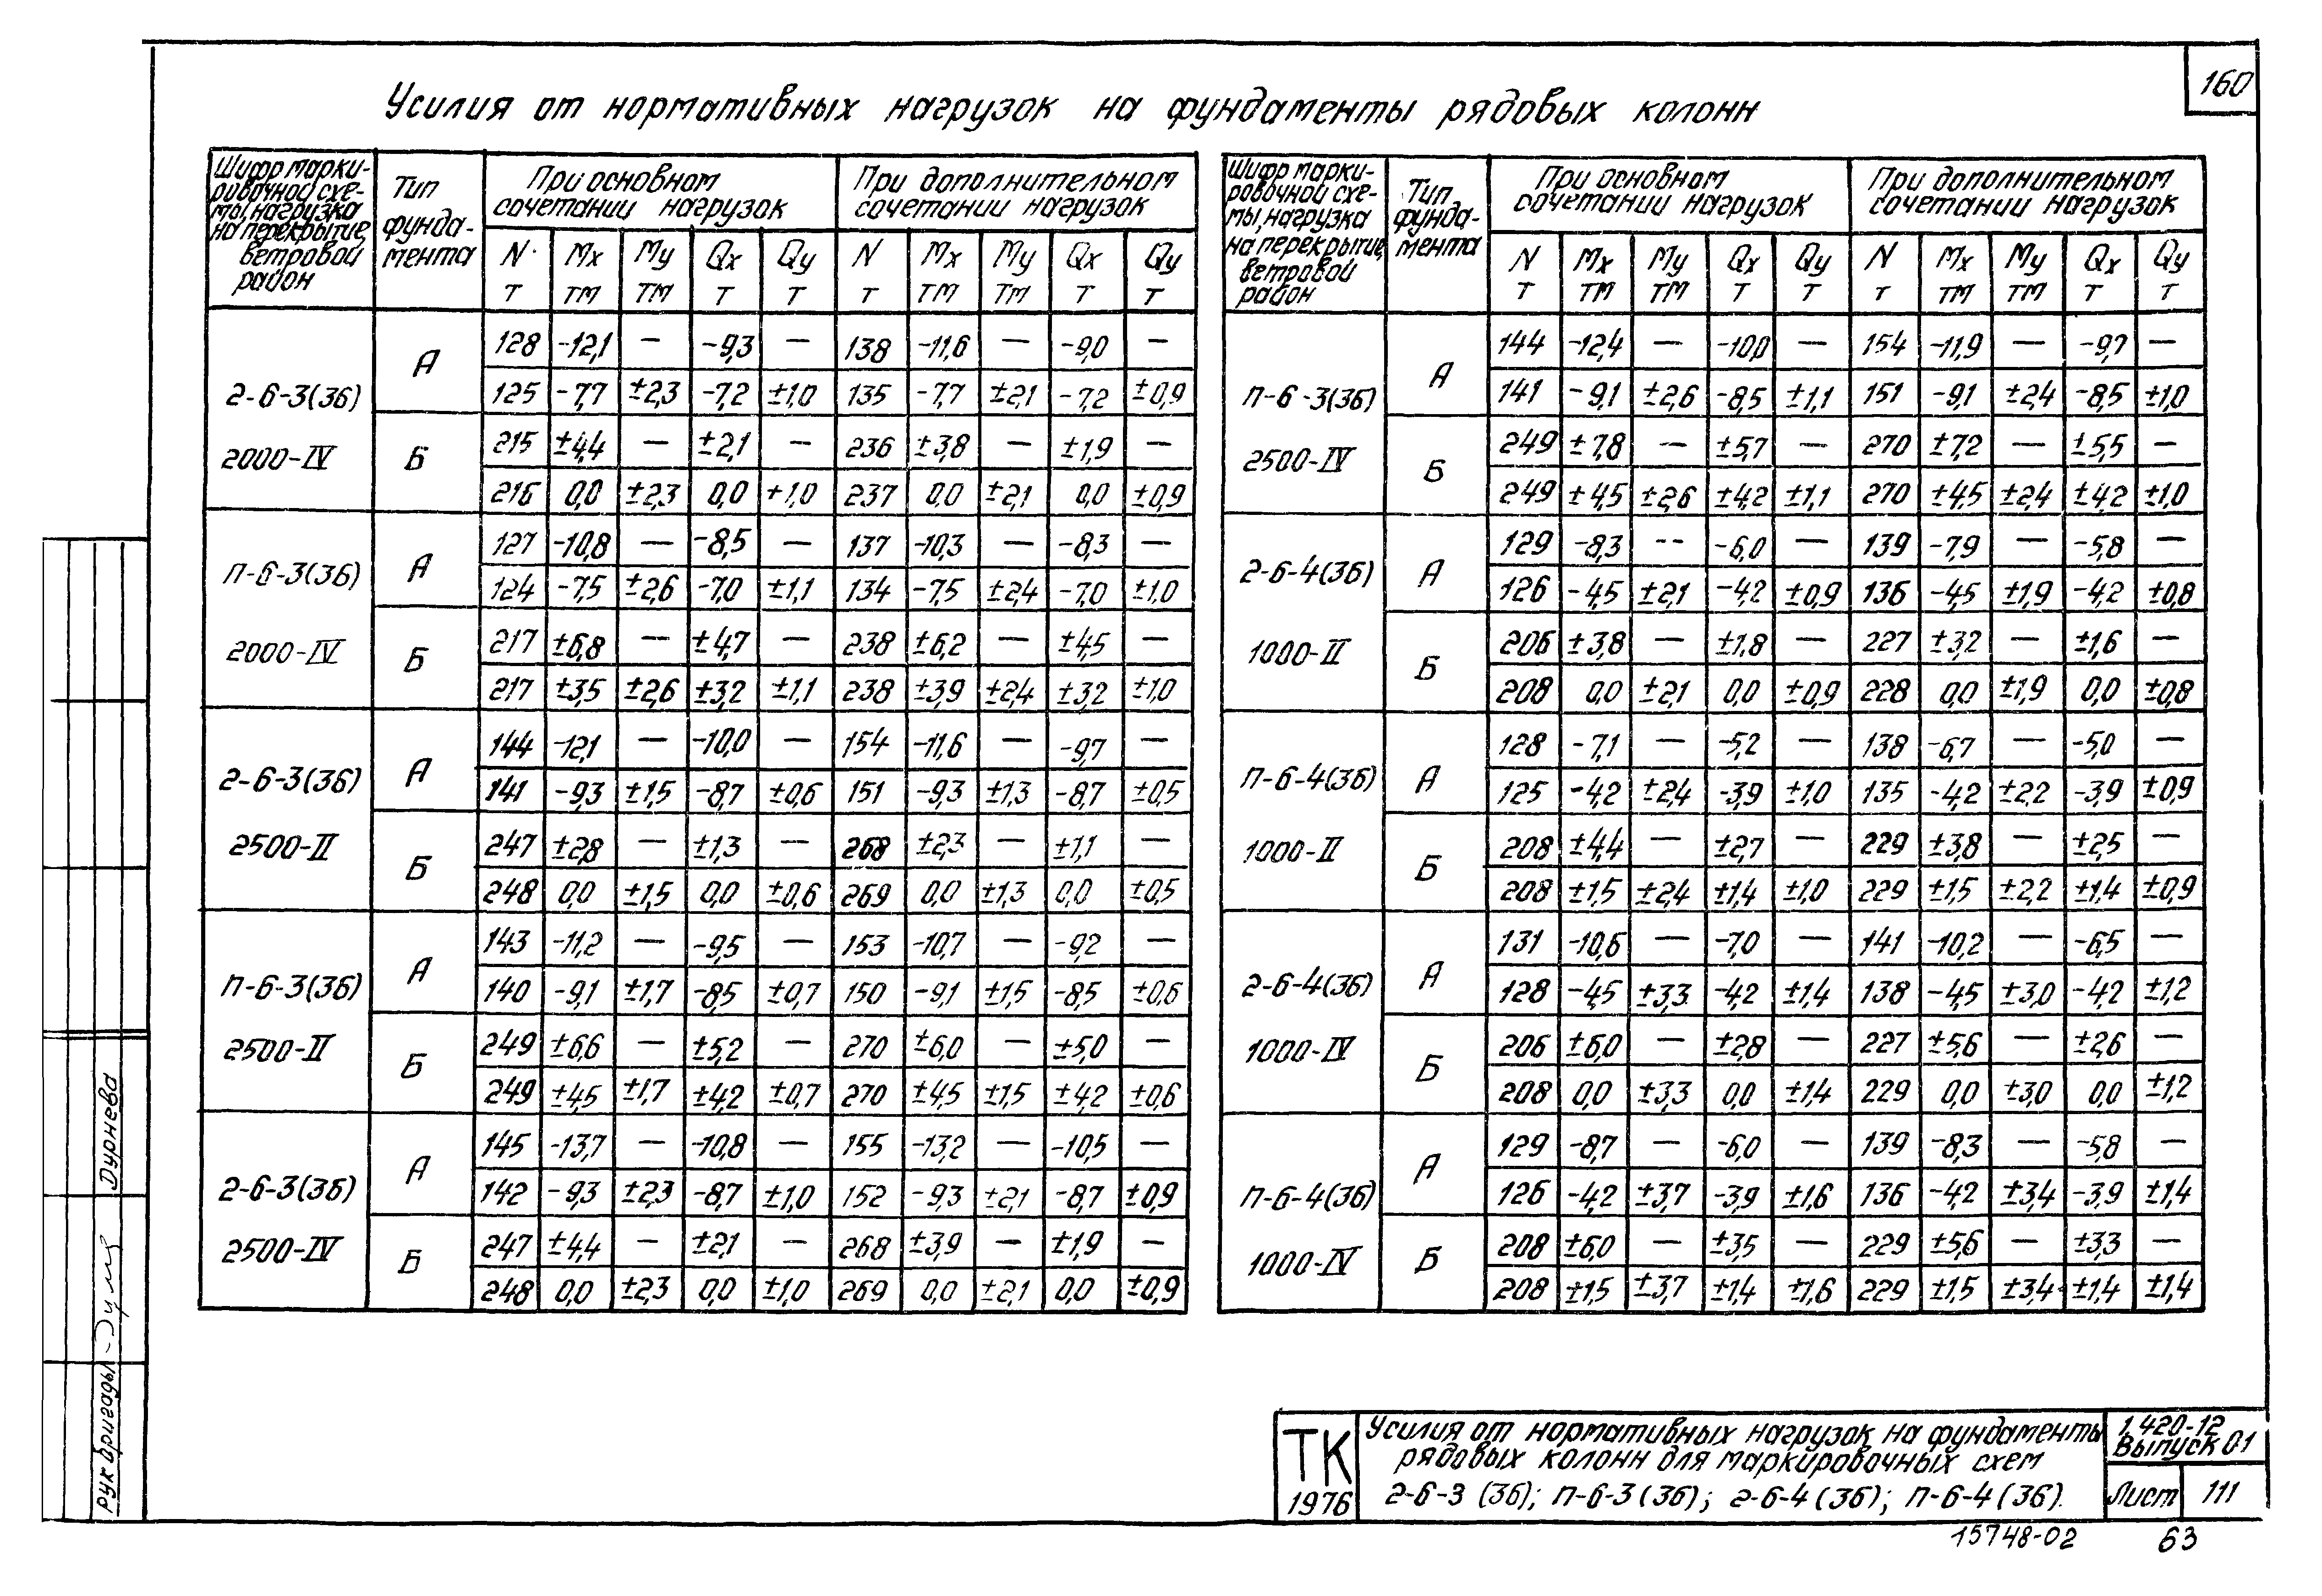 160
Усилия от нормативных нагрузок на фундаменты рядовых колонн
Шифр марки-
ровочной схе-
мы, нагрузка
на перекрытие,
ветровой
район
Тип
фунда-
мента
При основном
сочетании нагрузок
При дополнительном
сочетании нагрузок
N Mx My Qx Qy N Mx My Qx Qy
т тм тм т т т тм тм т т
2-6-3(36)
2000-IV
А
128 -12,1 — -9,3 — 138 -11,6 — -9,0 —
125 -7,7 ±2,3 -7,2 ±1,0 135 -7,7 ±2,1 -7,2 ±0,9
Б
215 ±4,4 — ±2,1 — 236 ±3,8 — ±1,9 —
216 0,0 ±2,3 0,0 +1,0 237 0,0 ±2,1 0,0 ±0,9
П-6-3(36)
2000-IV
А
127 -10,8 — -8,5 — 137 -10,3 — -8,3 —
124 -7,5 ±2,6 -7,0 ±1,1 134 -7,5 ±2,4 -7,0 ±1,0
Б
217 ±6,8 — ±4,7 — 238 ±6,2 — ±4,5 —
217 ±3,5 ±2,6 ±3,2 ±1,1 238 ±3,9 ±2,4 ±3,2 ±1,0
2-6-3(36)
2500-II
А
144 -12,1 — -10,0 — 154 -11,6 — -9,7 —
141 -9,3 ±1,5 -8,7 ±0,6 151 -9,3 ±1,3 -8,7 ±0,5
Б
247 ±2,8 — ±1,3 — 268 ±2,3 — ±1,1 —
248 0,0 ±1,5 0,0 ±0,6 269 0,0 ±1,3 0,0 ±0,5
П-6-3(36)
2500-II
А
143 -11,2 — -9,5 — 153 -10,7 — -9,2 —
140 -9,1 ±1,7 -8,5 ±0,7 150 -9,1 ±1,5 -8,5 ±0,6
Б
249 ±6,6 — ±5,2 — 270 ±6,0 — ±5,0 —
249 ±4,5 ±1,7 ±4,2 ±0,7 270 ±4,5 ±1,5 ±4,2 ±0,6
2-6-3(36)
2500-IV
А
145 -13,7 — -10,8 — 155 -13,2 — -10,5 —
142 -9,3 ±2,3 -8,7 ±1,0 152 -9,3 ±2,1 -8,7 ±0,9
Б
247 ±4,4 — ±2,1 — 268 ±3,9 — ±1,9 —
248 0,0 ±2,3 0,0 ±1,0 269 0,0 ±2,1 0,0 ±0,9
Шифр марки-
ровочной схе-
мы, нагрузка
на перекрытие,
ветровой
район
Тип
фунда-
мента
При основном
сочетании нагрузок
При дополнительном
сочетании нагрузок
N Mx My Qx Qy N Mx My Qx Qy
т тм тм т т т тм тм т т
П-6-3(36)
2500-IV
А
144 -12,4 — -10,0 — 154 -11,9 — -9,7 —
141 -9,1 ±2,6 -8,5 ±1,1 151 -9,1 ±2,4 -8,5 ±1,0
Б
249 ±7,8 — ±5,7 — 270 ±7,2 — ±5,5 —
249 ±4,5 ±2,6 ±4,2 ±1,1 270 ±4,5 ±2,4 ±4,2 ±1,0
2-6-4(36)
1000-II
А
129 -8,3 -- -6,0 — 139 -7,9 — -5,8 —
126 -4,5 ±2,1 -4,2 ±0,9 136 -4,5 ±1,9 -4,2 ±0,8
Б
206 ±3,8 — ±1,8 — 227 ±3,2 — ±1,6 —
208 0,0 ±2,1 0,0 ±0,9 228 0,0 ±1,9 0,0 ±0,8
П-6-4(36)
1000-II
А
128 -7,1 — -5,2 — 138 -6,7 — -5,0 —
125 -4,2 ±2,4 -3,9 ±1,0 135 -4,2 ±2,2 -3,9 ±0,9
Б
208 ±4,4 — ±2,7 — 229 ±3,8 — ±2,5 —
208 ±1,5 ±2,4 ±1,4 ±1,0 229 ±1,5 ±2,2 ±1,4 ±0,9
2-6-4(36)
1000-IV
А
131 -10,6 — -7,0 — 141 -10,2 — -6,5 —
128 -4,5 ±3,3 -4,2 ±1,4 138 -4,5 ±3,0 -4,2 ±1,2
Б
206 ±6,0 — ±2,8 — 227 ±5,6 — ±2,6 —
208 0,0 ±3,3 0,0 ±1,4 229 0,0 ±3,0 0,0 ±1,2
П-6-4(36)
1000-IV
А
129 -8,7 — -6,0 — 139 -8,3 — -5,8 —
126 -4,2 ±3,7 -3,9 ±1,6 136 -4,2 ±3,4 -3,9 ±1,4
Б
208 ±6,0 — ±3,5 — 229 ±5,6 — ±3,3 —
208 ±1,5 ±3,7 ±1,4 ±1,6 229 ±1,5 ±3,4 ±1,4 ±1,4
Рук бригады Дурнева
ТК
1976
Усилия от нормативных нагрузок на фундаменты
рядовых колонн для маркировочных схем
2-6-3 (36); П-6-3 (36); 2-6-4 (36); П-6-4 (36).
1.420-12
Выпуск 01
Лист 111
15748-02 63